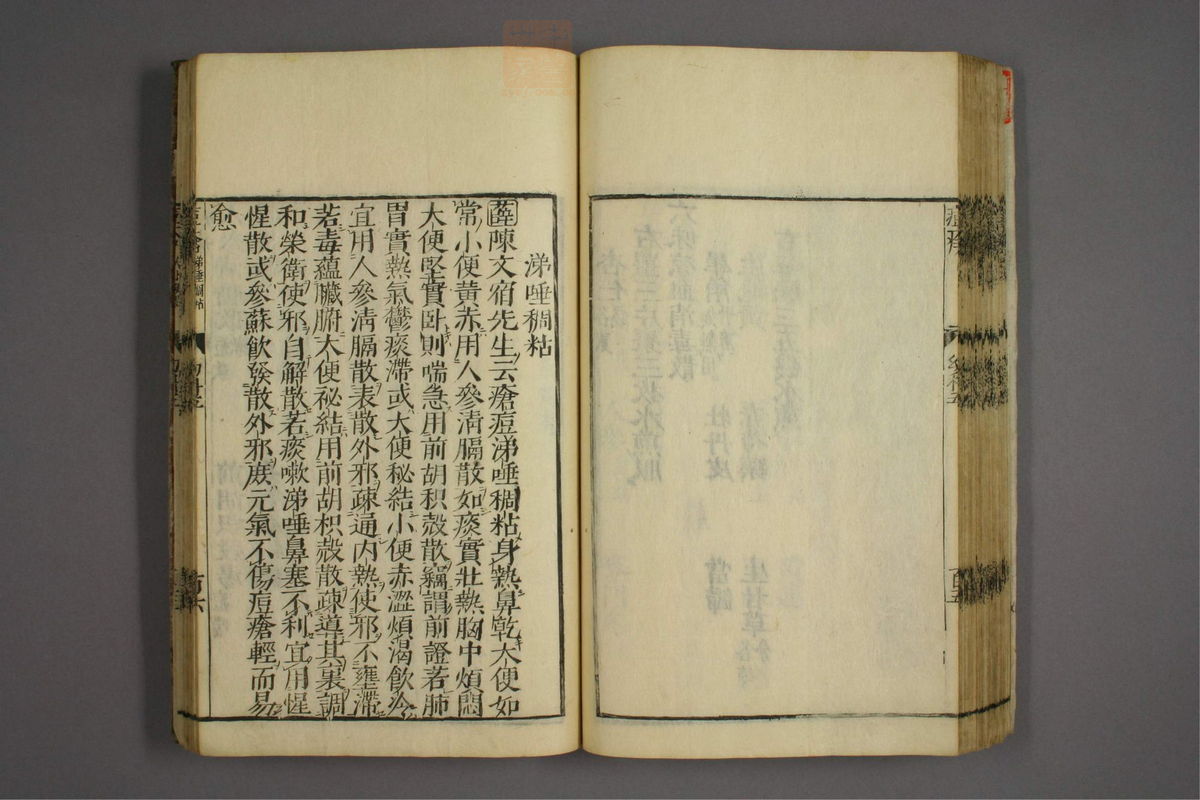 涕唾稠粘
薛陳文宿先生云瘡痘涕唾稠粘身熱鼻乾大便如
常小便黃赤用人參淸膈散如痰實壯熱胸中煩悶
大便堅實卧則喘急用前胡枳殼散竊謂前證若肺
胃實熱氣鬱痰滯或大便秘結小便赤澀煩渴飮冷
宜用人參淸膈散表散外邪疎通内熱使邪不壅滯
若毒蘊臟腑大便祕結用前胡枳殼散疎導其裏調
和榮衛使邪自解散若痰嗽涕唾鼻塞不利宜用惺
惺散或參蘇飮發散外邪庻元氣不傷痘瘡輕而易
愈
涕唾稠粘
百六